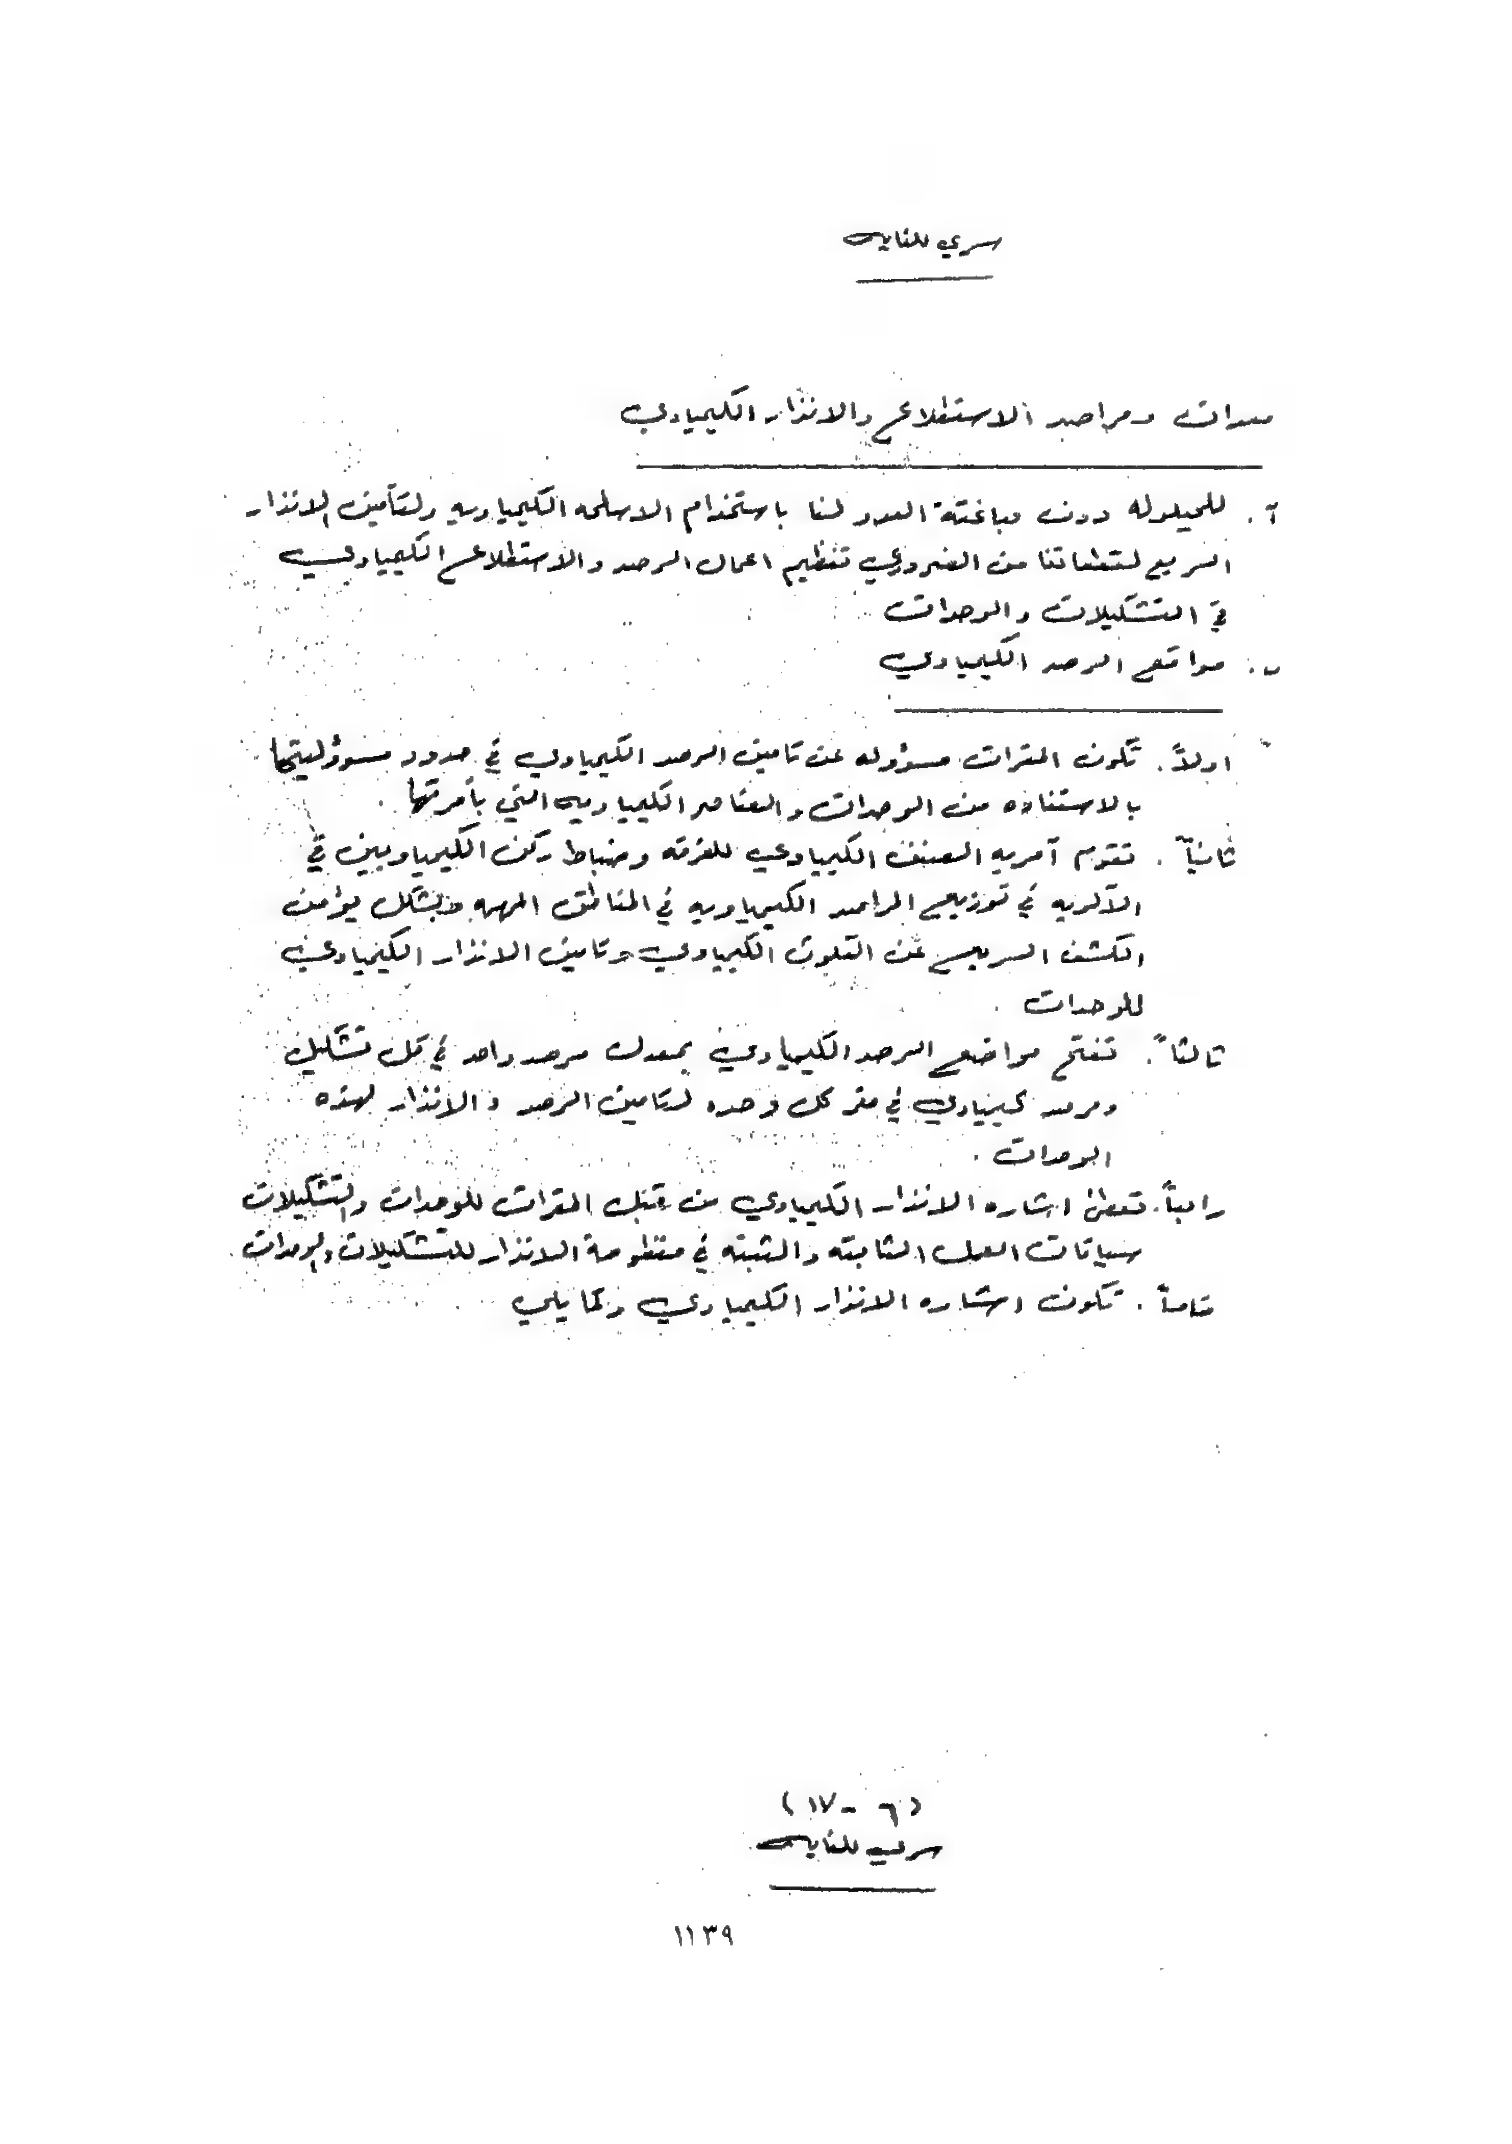 سري للغايه
معدات ومراصد الاستطلاع والانذار الكيمياوي
آ. للحيلوله دون مباغتة العدو لنا باستخدام الاسلحه الكيمياويه ولتأمين الانذار
السريع لقطعاتنا من الضروري تنظيم اعمال الرصد والاستطلاع الكيمياوي
في التشكيلات والوحدات
ب. مواقع الرصد الكيمياوي
اولاً. تكون المقرات مسؤوله عن تامين الرصد الكيمياوي في حدود مسوؤليتها
بالاستفاده من الوحدات والعناصر الكيمياويه التي بأمرتها.
ثانياً. تقوم آمريه الصنف الكيمياوي للفرقه وضباط ركن الكيمياويين في
الألويه في توزيع المراصد الكيمياويه في المناطق المهمه وبشكل يؤمن
الكشف السريع عن التلوث الكيمياوي وتامين الانذار الكيمياوي
للوحدات.
ثالثاً. تفتح مواضع الرصد الكيمياوي بمعدل مرصد واحد في كل تشكيل
ومرصد كيمياوي في مقر كل وحده لتامين الرصد والانذار لهذه
الوحدات.
رابعاً. تعطى اشاره الانذار الكيمياوي من قبل المقرات للوحدات والتشكيلات
سياقات العمل الثابته والمثبته في منظومة الانذار للتشكيلات والوحدات.
خامساً. تكون اشاره الانذار الكيمياوي وكما يلي
(٦ - ١٧)
سري للغايه
١١٣٩